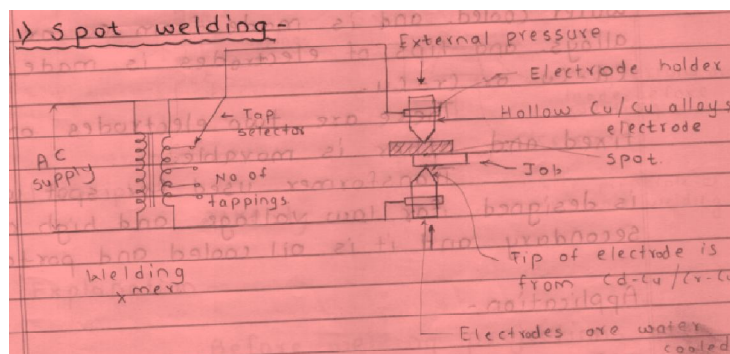 1) Spot welding -
External pressure
Electrode holder
Hollow Cu/Cu alloys
electrode
Tap
selector
AC
supply
No. of
tappings
spot.
Job
Tip of electrode is
from Cd-Cu/Cr-Cu
Welding
xmer
Electrodes are water
cooled